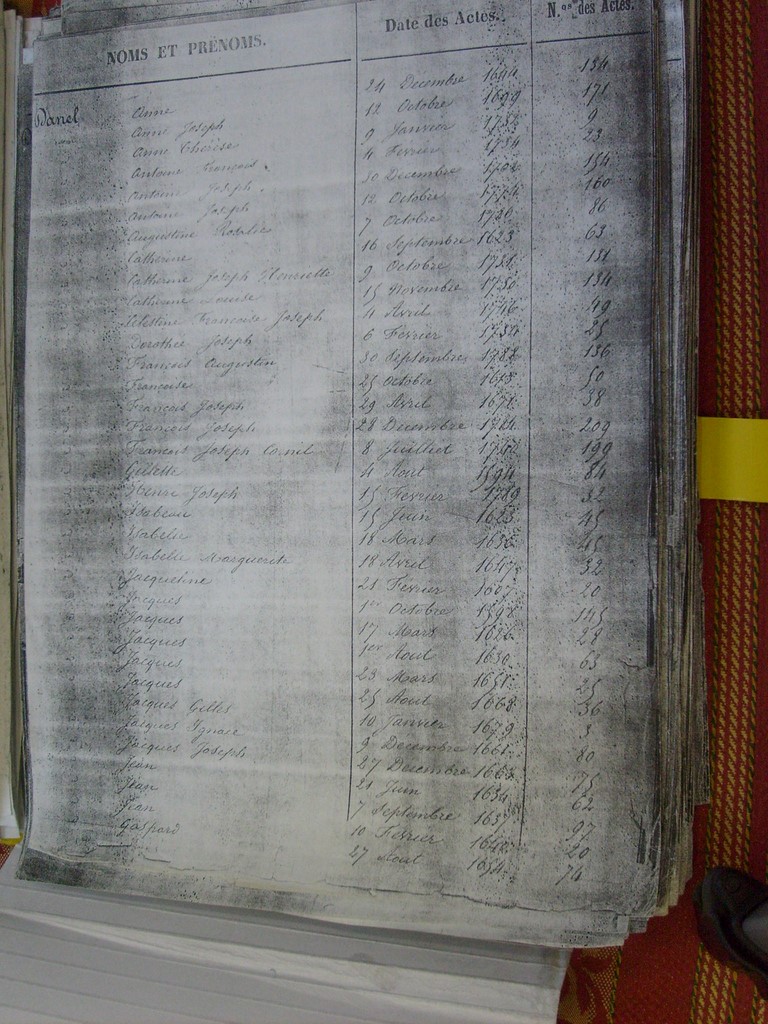 NOMS ET PRÉNOMS. Date des Actes. N.os des Actes.
Danel Anne 24 Decembre 1644 134
Anne Joseph 12 Octobre 1699 171
Anne Thérèse 9 Janvier 1732 9
Antoine François 4 Fevrier 1734 23
Antoine Joseph 30 Decembre 1702 154
Antoine Joseph 12 Octobre 1774 160
Augustine Rosalie 7 Octobre 1780 86
Catherine 16 Septembre 1623 63
Catherine Joseph Henriette 9 Octobre 131
Catherine Louise 15 Novembre 1750 134
Celestine Françoise Joseph 4 Avril 1746 49
Dorothée Joseph 6 Fevrier 1734 25
François Augustin 30 Septembre 1788 136
Françoise 25 Octobre 1653 50
François Joseph 29 Avril 1671 38
François Joseph 28 Decembre 1724 209
François Joseph Cornil 8 Juillet 1752 199
Gillette 4 Aout 1594 84
Henri Joseph 15 Fevrier 1789 32
Isabeau 15 Juin 1623 45
Isabelle 18 Mars 1636 45
Isabelle Marguerite 18 Avril 1647 32
Jacqueline 21 Fevrier 1607 20
Jacques 1er Octobre 1598 145
Jacques 17 Mars 1626 28
Jacques 1er Aout 1630 63
Jacques 23 Mars 1651 25
Jacques 25 Aout 1668 36
Jacques Gilles 10 Janvier 1679 3
Jacques Ignace 9 Decembre 1661 80
Jacques Joseph 27 Decembre 1663 175
Jean 21 Juin 1634 62
Jean 7 Septembre 97
Jean 10 Fevrier 1640 20
Gaspard 27 Aout 1654 74